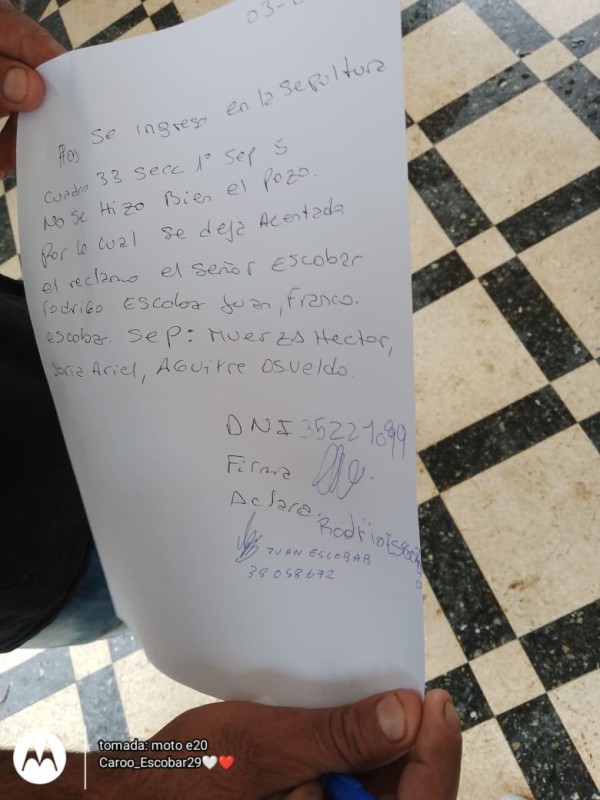 03-
Hoy se ingreso en la sepultura
cuadro 33 secc 1° sep 5
No se Hizo Bien el pozo.
por lo cual se deja Acentada
el reclamo el señor Escobar
rodrigo Escobar Juan, Franco.
escobar. sep: Muerzas Hector,
Soria Ariel, Aguirre Osveldo.
DNI 35221099
Firma
Aclara. Rodrigo Escobar
JUAN ESCOBAR
38058672
tomada: moto e20
Caroo_Escobar29🤍❤️